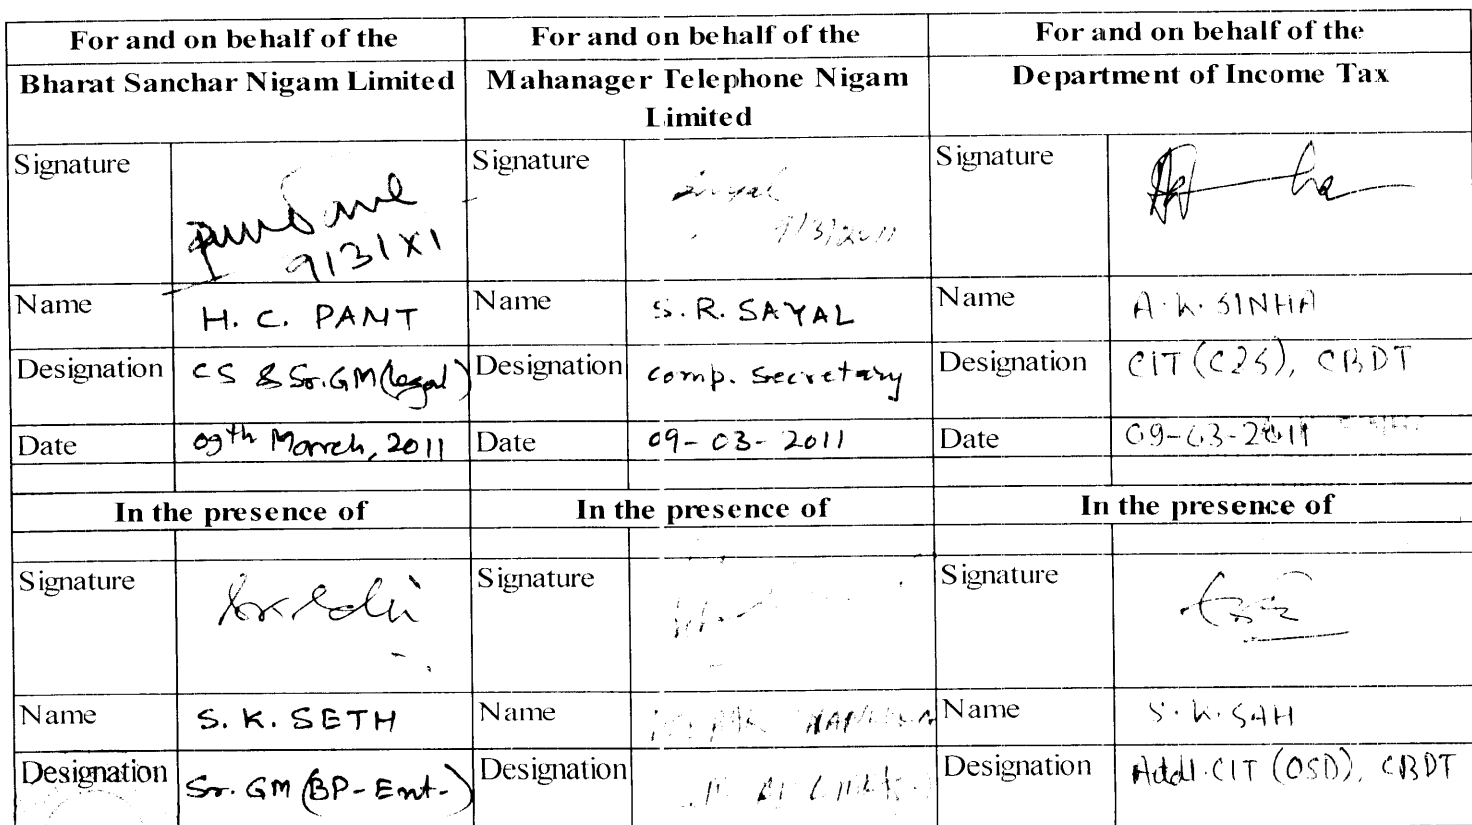 For and on behalf of the For and on behalf of the For and on behalf of the
Bharat Sanchar Nigam Limited Mahanager Telephone Nigam Department of Income Tax
Limited
Signature Signature Signature
9/3/2011
9/3/XI
Name H. C. PANT Name S. R. SAYAL Name A. K. SINHA
Designation CS & Sr. GM (legal) Designation comp. secretary Designation CIT (C&S), CBDT
Date 09th March, 2011 Date 09-03-2011 Date 09-03-2011
In the presence of In the presence of In the presence of
Signature Signature Signature
Name S. K. SETH Name Name S. K. SAH
Designation Sr. GM (BP-Ent-) Designation Designation Addl. CIT (OSD), CBDT